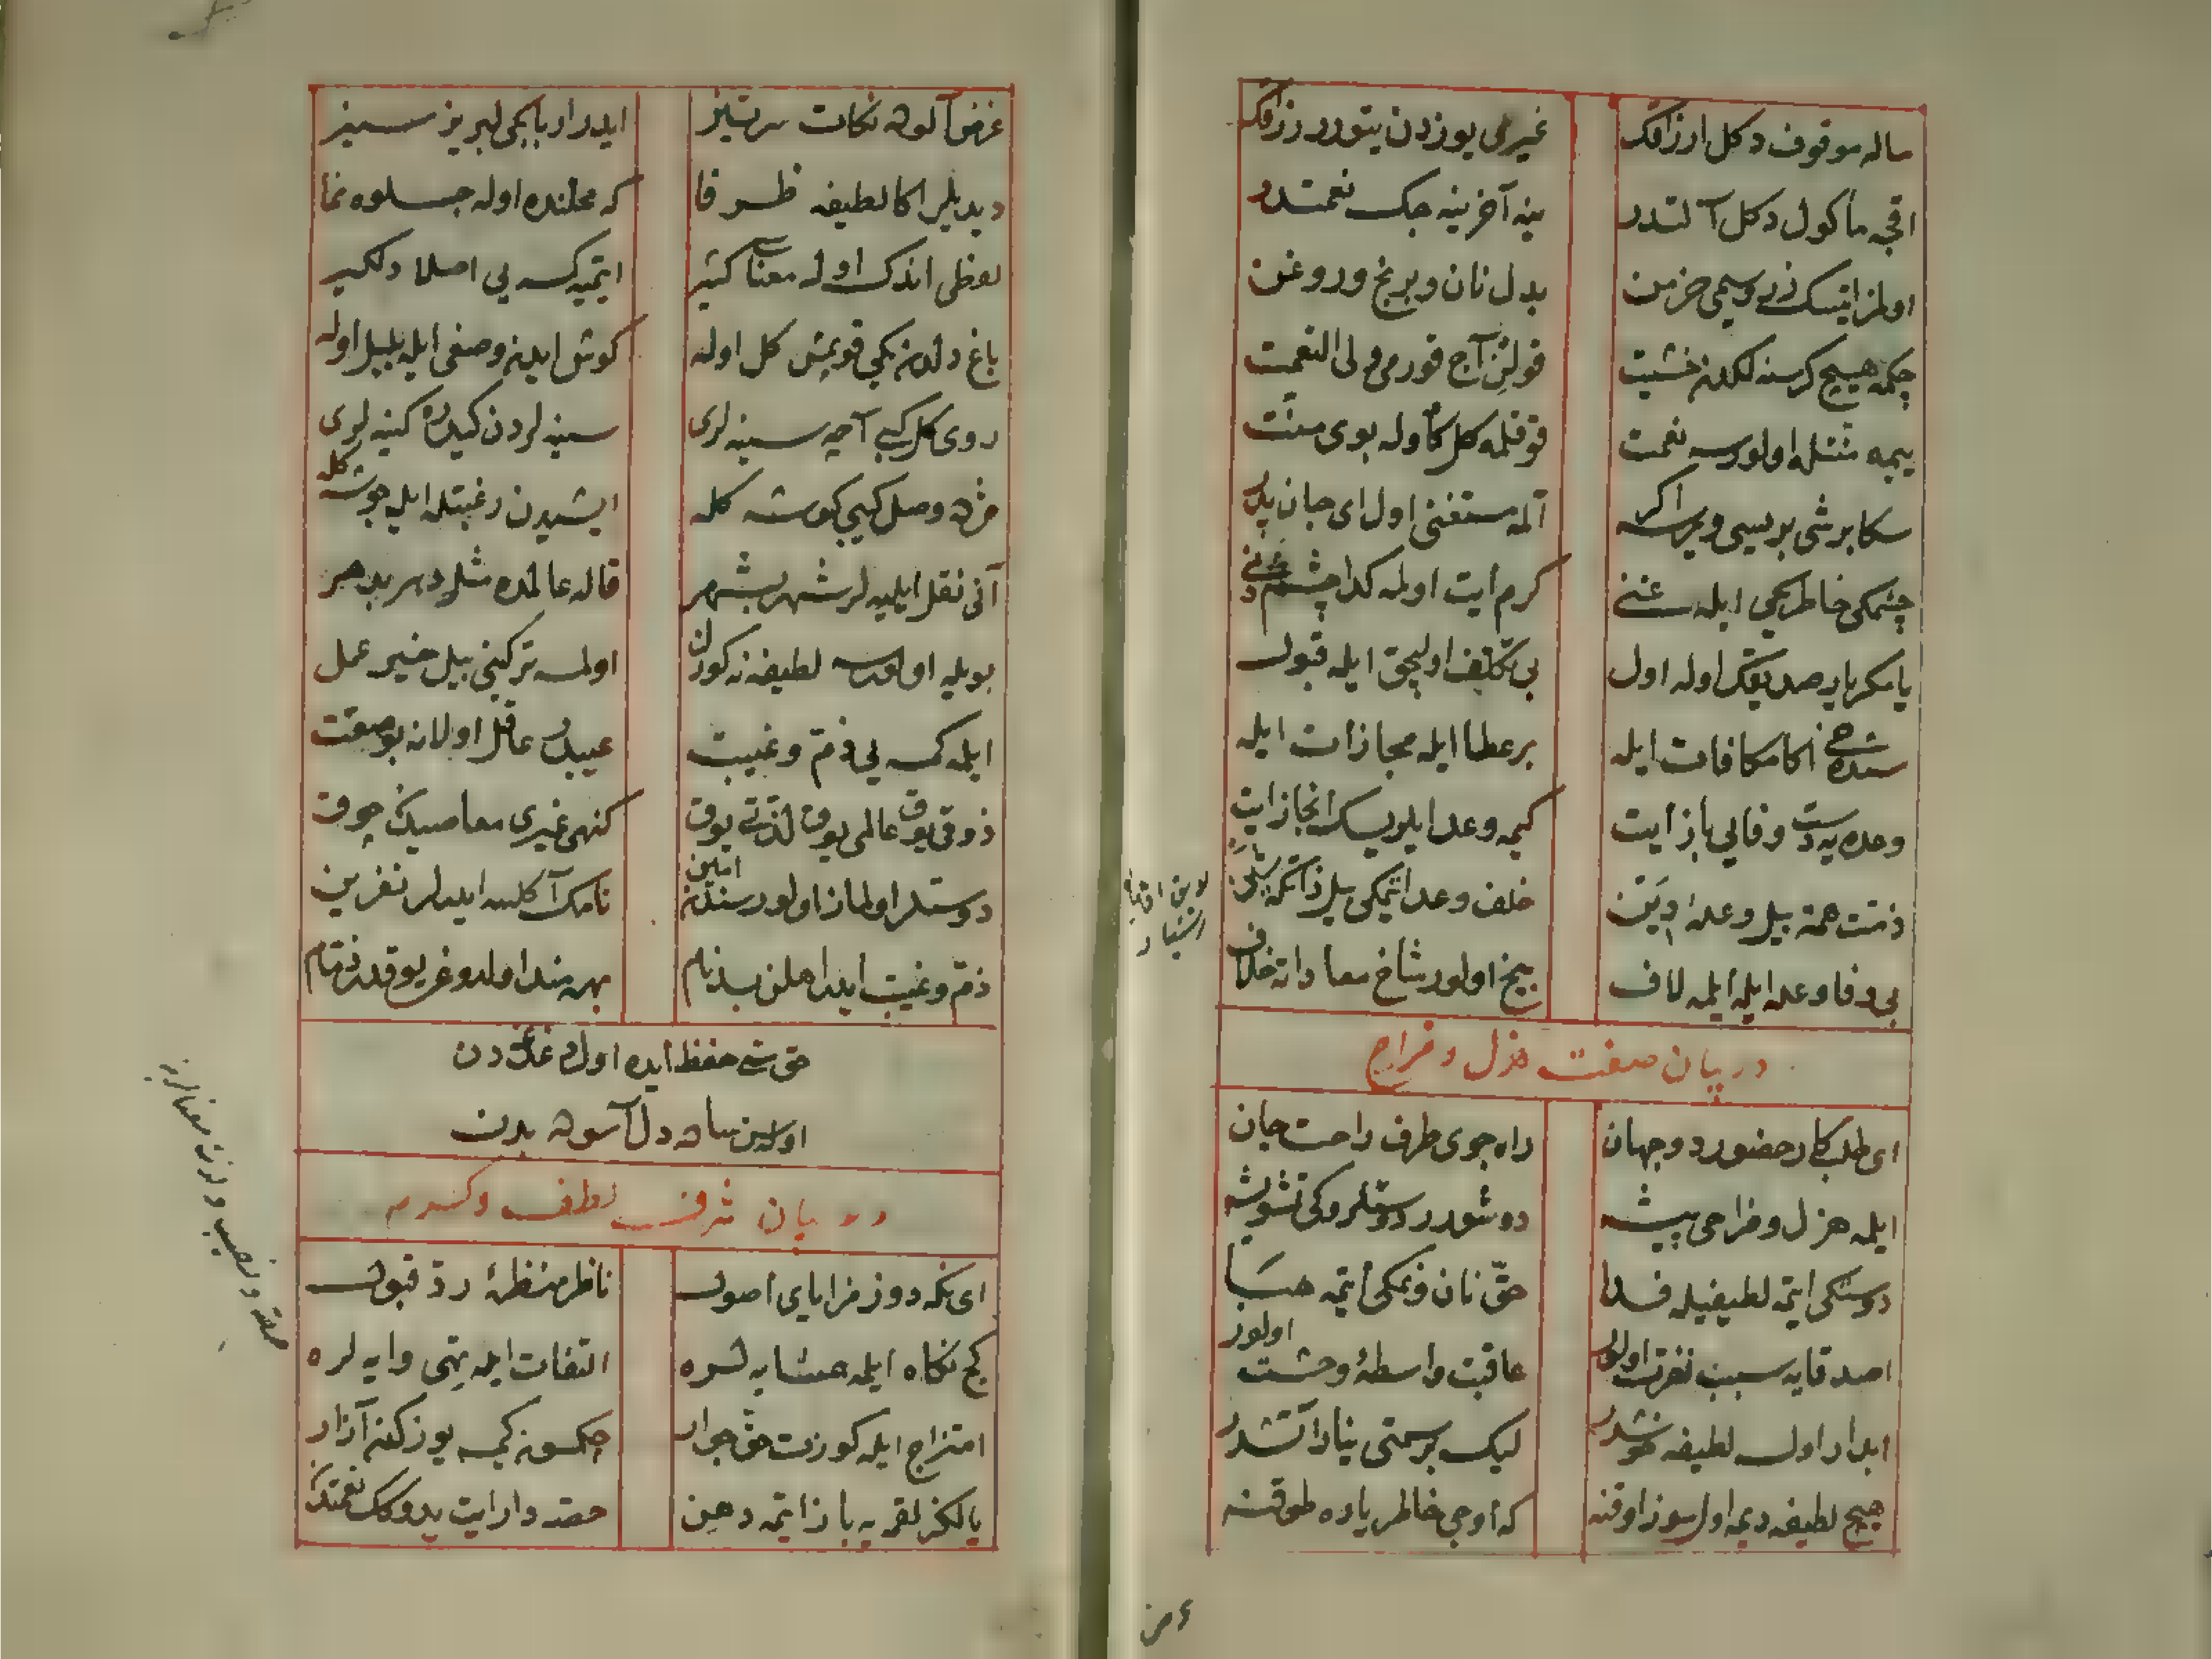 ماله موقوف دكل ارزاقك
غیری یوزدن یتورر رزاقك
اقچه مأكول دكل آلتدر
ینه آخرینه جك نعمتدر
اولمز ایتسك زر وسیمی خرمن
بدل نان و برنج و روغن
چكمه هیچ كرسنه لكدن خشیت
قولنی آج قورمی ولی النعمت
یمه منتله اولورسه نعمت
قوقلمه كل كه اوله بوی منت
سكا بر شی بریسی ویرسه اكر
آلمه مستغنی اول ای جان پدر
چشمكی خاطركی ایله غنی
كرم ایت اولمه كدا چشم دنی
یا مكر یار صدیقك اوله اول
بی تكلف اولیجق ایله قبول
سنده اكا مكافات ایله
بر عطا ایله مجازات ایله
وعده یه دست وفایی باز ایت
كیمه وعد ایلر ایسك انجاز ایت
ذمت همته بیل وعده دین
خلف وعد ایتمكی بیل ذاتكه شین
بی وفا وعد ایله ایلمه لاف
یخ اولور شاخ معاداته خلاف
در بیان صفت هزل و مزاح
ای طلبكار حضور دو جهان
راه جوی طرف راحت جان
ایلمه هزل و مزاحی پیشه
دوشورر دوستلر وكی تشویشه
دوستكی ایتمه لطیفیله فدا
حق نان و نمكی ایتمه هبا
اصدقایه سبب نفرت اولور
عاقبت واسطه وحشت اولور
ابدار اول لطیفه خوشدر
لیك برسمتی ینار آتشدر
هیچ لطیفه دیمه اول سوز اوقنه
كه اوجی خاطر یاره طوقنه
غرض آلوده نكات سرتیز
ایدر ارباب‌ی لبریز ستیز
دیدیلر اكا لطیفه ظرفا
كه محلنده اوله جلوه نما
لفظی اندك اوله معناسی كثیر
ایتمیه كسه یی اصلا دلكیر
باغ دلدن یكی قوپمش كل اوله
كوش ایدن وصفی ایله بلبل اوله
روی كل كبی آچه سینه لری
سینه لردن كیدره كینه لری
مژده وصل كبی كوشه كله
ایشیدن رغبتله ایله جوشه كله
آنی نقل ایلیه لر شهر بشهر
قاله عالمده مثلر دهر بدهر
بویله اولورسه لطیفه نه كوزل
اولمسه تركینی بیل خیر عمل
ایلمه كسه یی ذم و غیبت
عیبدر عاقل اولانه بو صفت
ذوقی یوق عالمی یوق لذتی یوق
كنهی غیری معاصیدن چوق
دوستلر اولماز اولور سندن امین
نامك آكلسه ایدرلر نفرین
ذم و غیبت ایدر اهلن بدنام
بهره مند اولدوغی یوقدر ذمام
حق سنی حفظ ایده اول علتدن
اولاسین ساده دل آسوده بدن
در بیان شرف لطف و كرم
ای نكه دوز مزایای اصول
ناظر منظره رد و قبول
كج نكاه ایلمه همسایه لره
التفات ایله یتمی وایه لره
امتزاج ایله كوزت حق جوار
چكمسون كیمسه یوزكدن آزار
یالكز لقمه یه باز ایتمه دهن
حصه دار ایت یدوكك نعمتدن